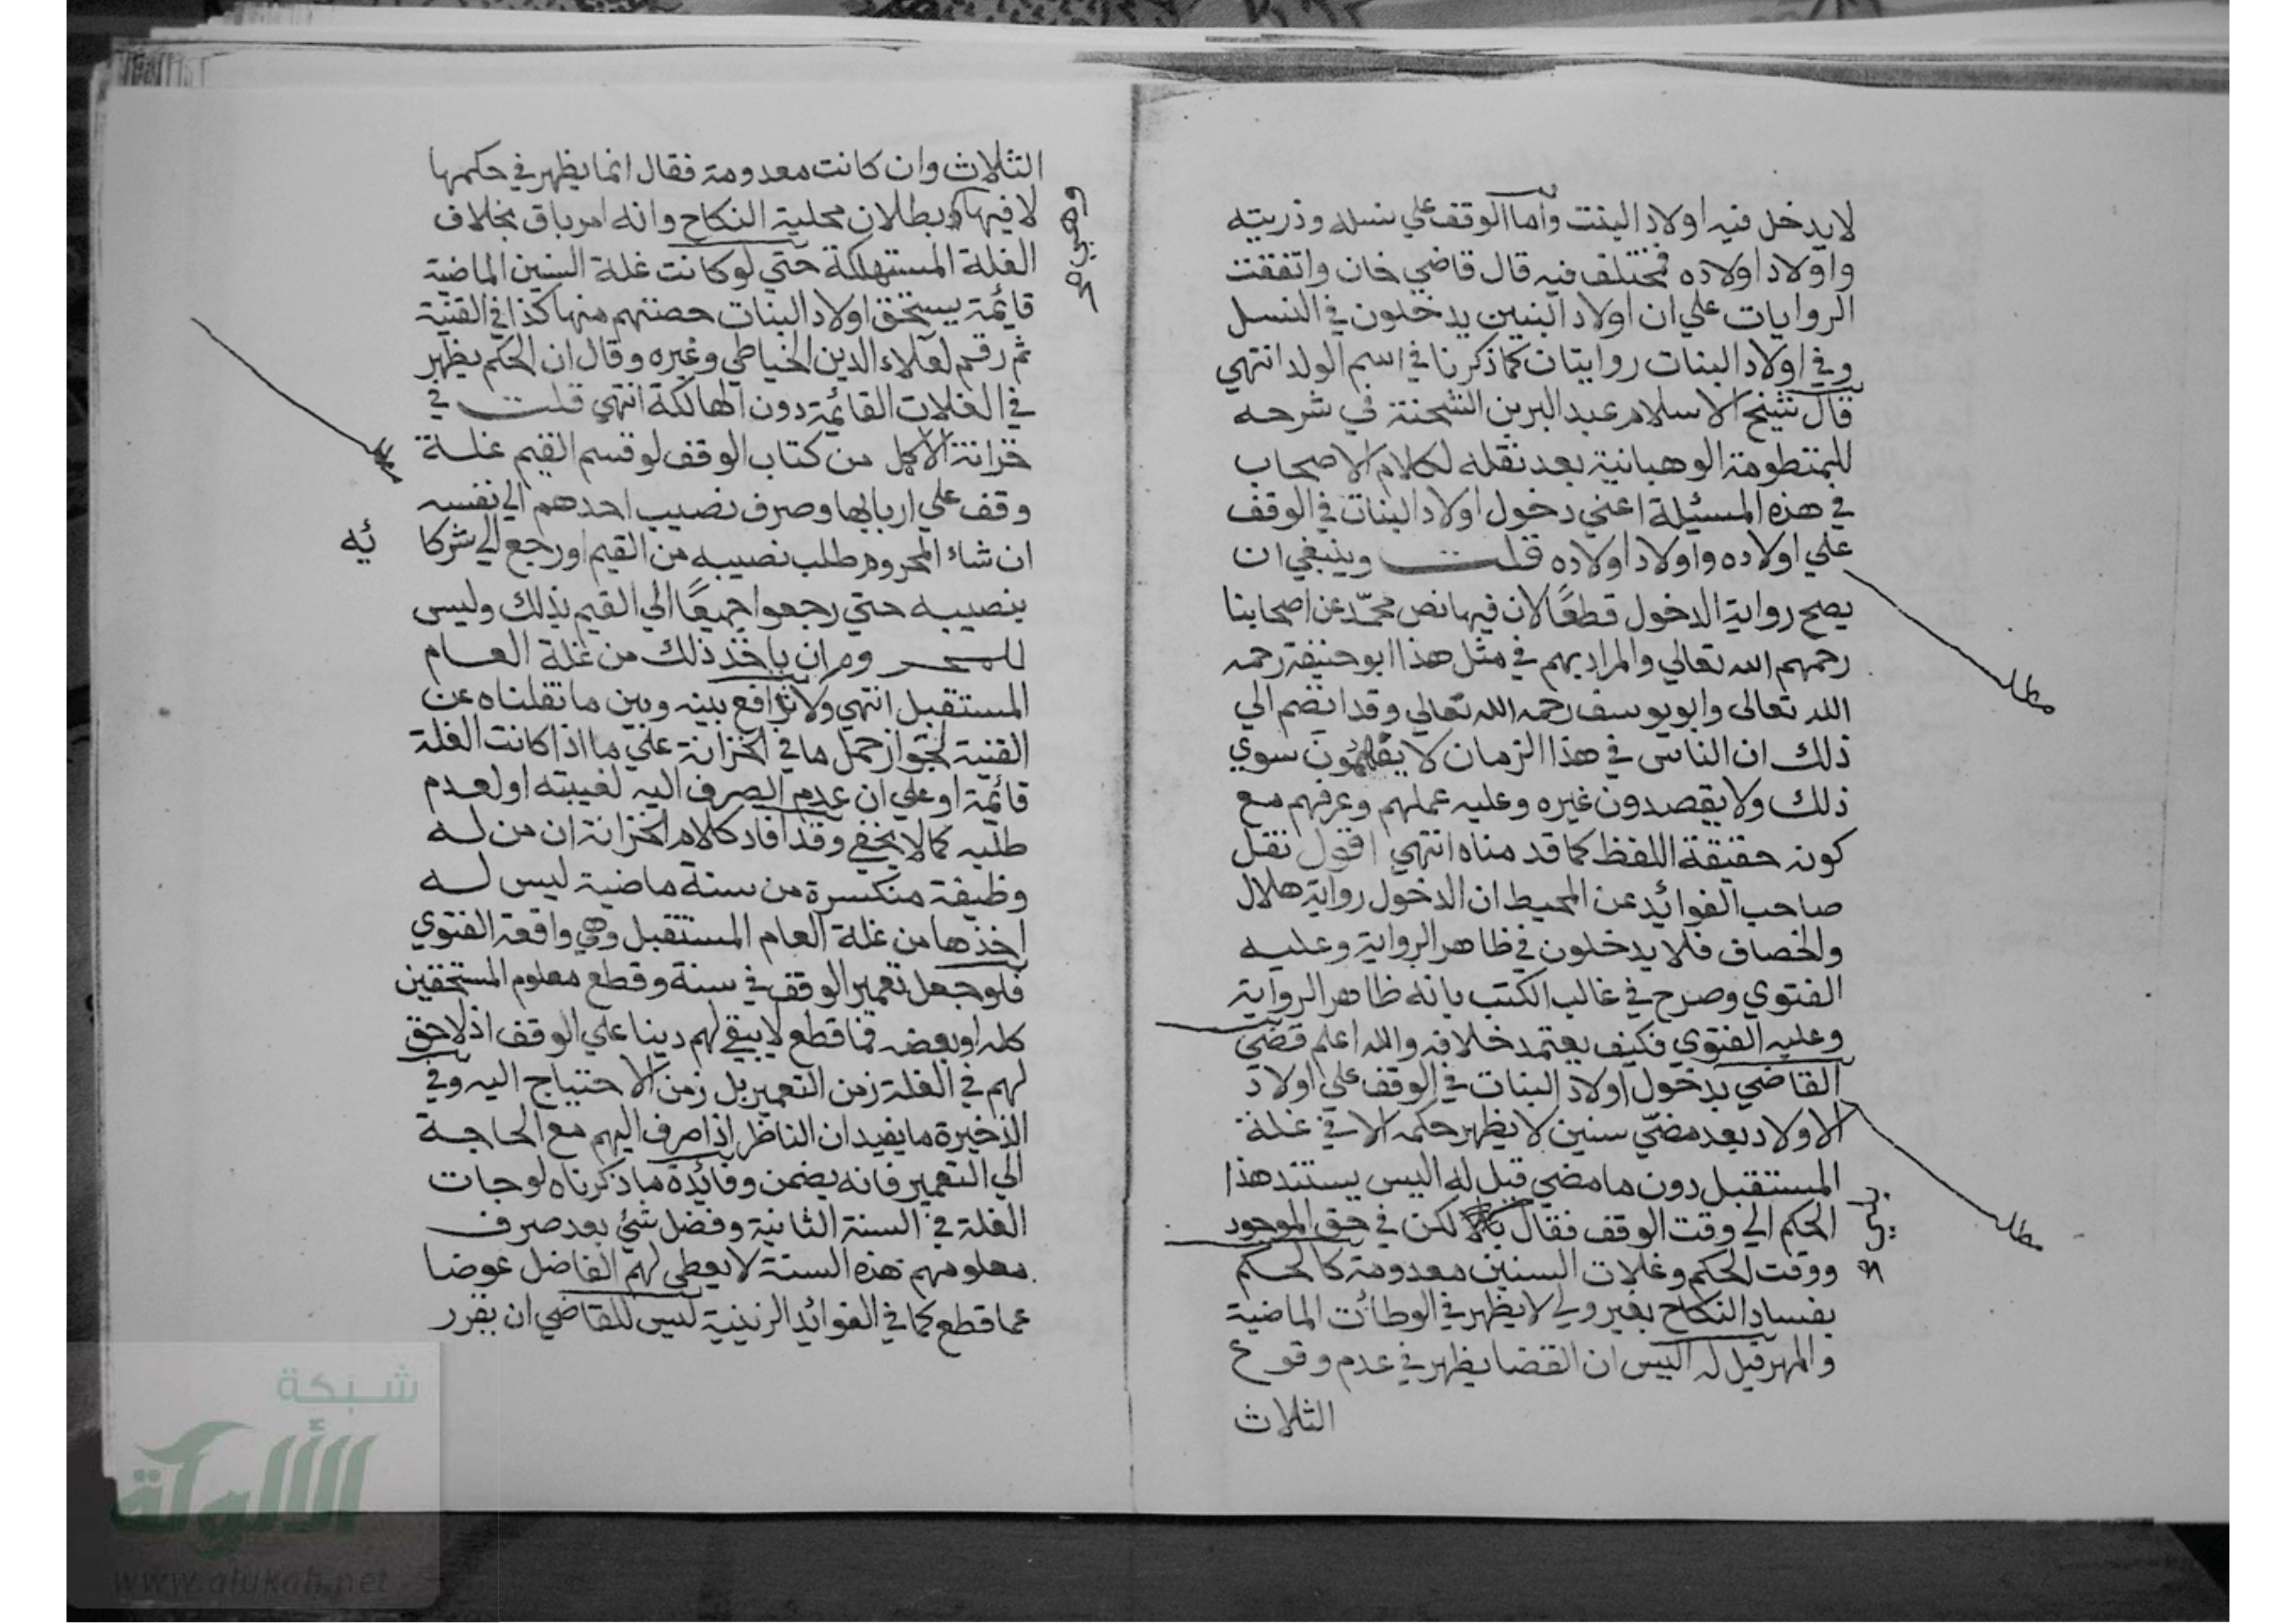 لا يدخل فيه اولاد البنت واما الوقف علي نسله وذريته
واولاد اولاده فمختلف فيه قال قاضي خان واتفقت
الروايات علي ان اولاد البنين يدخلون في النسل
وفي اولاد البنات روايتان كما ذكرنا في اسم الولد انتهي
قال شيخ الاسلام عبد البر بن الشحنة في شرحه
للمنظومة الوهبانية بعد نقله لكلام الاصحاب
في هذه المسئلة اعني دخول اولاد البنات في الوقف
علي اولاده واولاد اولاده قلت وينبغي ان
يصح رواية الدخول قطعًا لان فيها نص محمّد عن اصحابنا
رحمهم الله تعالي والمراد بهم في مثل هذا ابو حنيفة رحمه
الله تعالى وابو يوسف رحمه الله تعالي وقد انضم الي
ذلك ان الناس في هذا الزمان لا يفهمون سوي
ذلك ولا يقصدون غيره وعليه عملهم وعرفهم مع
كونه حقيقة اللفظ كما قدمناه انتهي اقول نقل
صاحب الفوائد عن المحيط ان الدخول رواية هلال
والخصاف فلا يدخلون في ظاهر الرواية وعليه
الفتوي وصرح في غالب الكتب بانه ظاهر الرواية
وعليه الفتوي فكيف يعتمد خلافه والله اعلم قضي
القاضي بدخول اولاد البنات في الوقف علي اولاد
الاولاد بعد مضيّ سنين لا يظهر حكمه الا في غلة
المستقبل دون ما مضي قيل له اليس يستند هذا
الحكم الي وقت الوقف فقال لكن في حق الموجود
ووقت الحكم وغلات السنين معدومة كالحكم
بفساد النكاح بغير ولي لا يظهر في الوطأت الماضية
والمهر قيل له اليس ان القضا يظهر في عدم وقوع
الثلاث
مطلب
مطلب
الثلاث وان كانت معدومة فقال انما يظهر في حكمها
لا فيها بطلان محلية النكاح وانه امر باق بخلاف
الغلة المستهلكة حتي لو كانت غلة السنين الماضية
قائمة يستحق اولاد البنات حصتهم منها كذا في القنية
ثم رقم لعلاء الدين الخياطي وغيره وقال ان الحكم يظهر
في الغلات القائمة دون الهالكة انتهي قلت في
خزانة الاكمل من كتاب الوقف لو قسم القيم غلة
وقف علي اربابها وصرف نصيب احدهم الي نفسه
ان شاء المحروم طلب نصيبه من القيم او رجع الي شركا ئه
بنصيبه حتي رجعوا جميعًا الي القيم بذلك وليس
للمحر وم ان ياخذ ذلك من غلة العام
المستقبل انتهي ولا بينه وبين ما نقلناه عن
القنية لجواز حمل ما في الخزانة علي ما اذا كانت الغلة
قائمة او علي ان عدم الصرف اليه لغيبته او لعدم
طلبه كما لا يخفي وقد افاد كلام الخزانة ان من له
وظيفة منكسرة من سنة ماضية ليس له
اخذها من غلة العام المستقبل وهي واقعة الفتوي
فلو جعل تعمير الوقف في سنة وقطع معلوم المستحقين
كله او بعضه فما قطع لا يبقي لهم دينا علي الوقف اذ لا حق
لهم في الغلة زمن التعمير بل زمن الاحتياج اليه وفي
الذخيرة ما يفيد ان الناظر اذا صرف اليهم مع الحاجة
الي التعمير فانه يضمن وفائدة ما ذكرناه لو جات
الغلة في السنة الثانية وفضل شئ بعد صرف
معلومهم هذه السنة لا يعطي لهم الفاضل عوضا
عما قطع كما في الفوائد الزينية ليس للقاضي ان يقرر
مطلب
شبكة
الألوكة
www.alukah.net